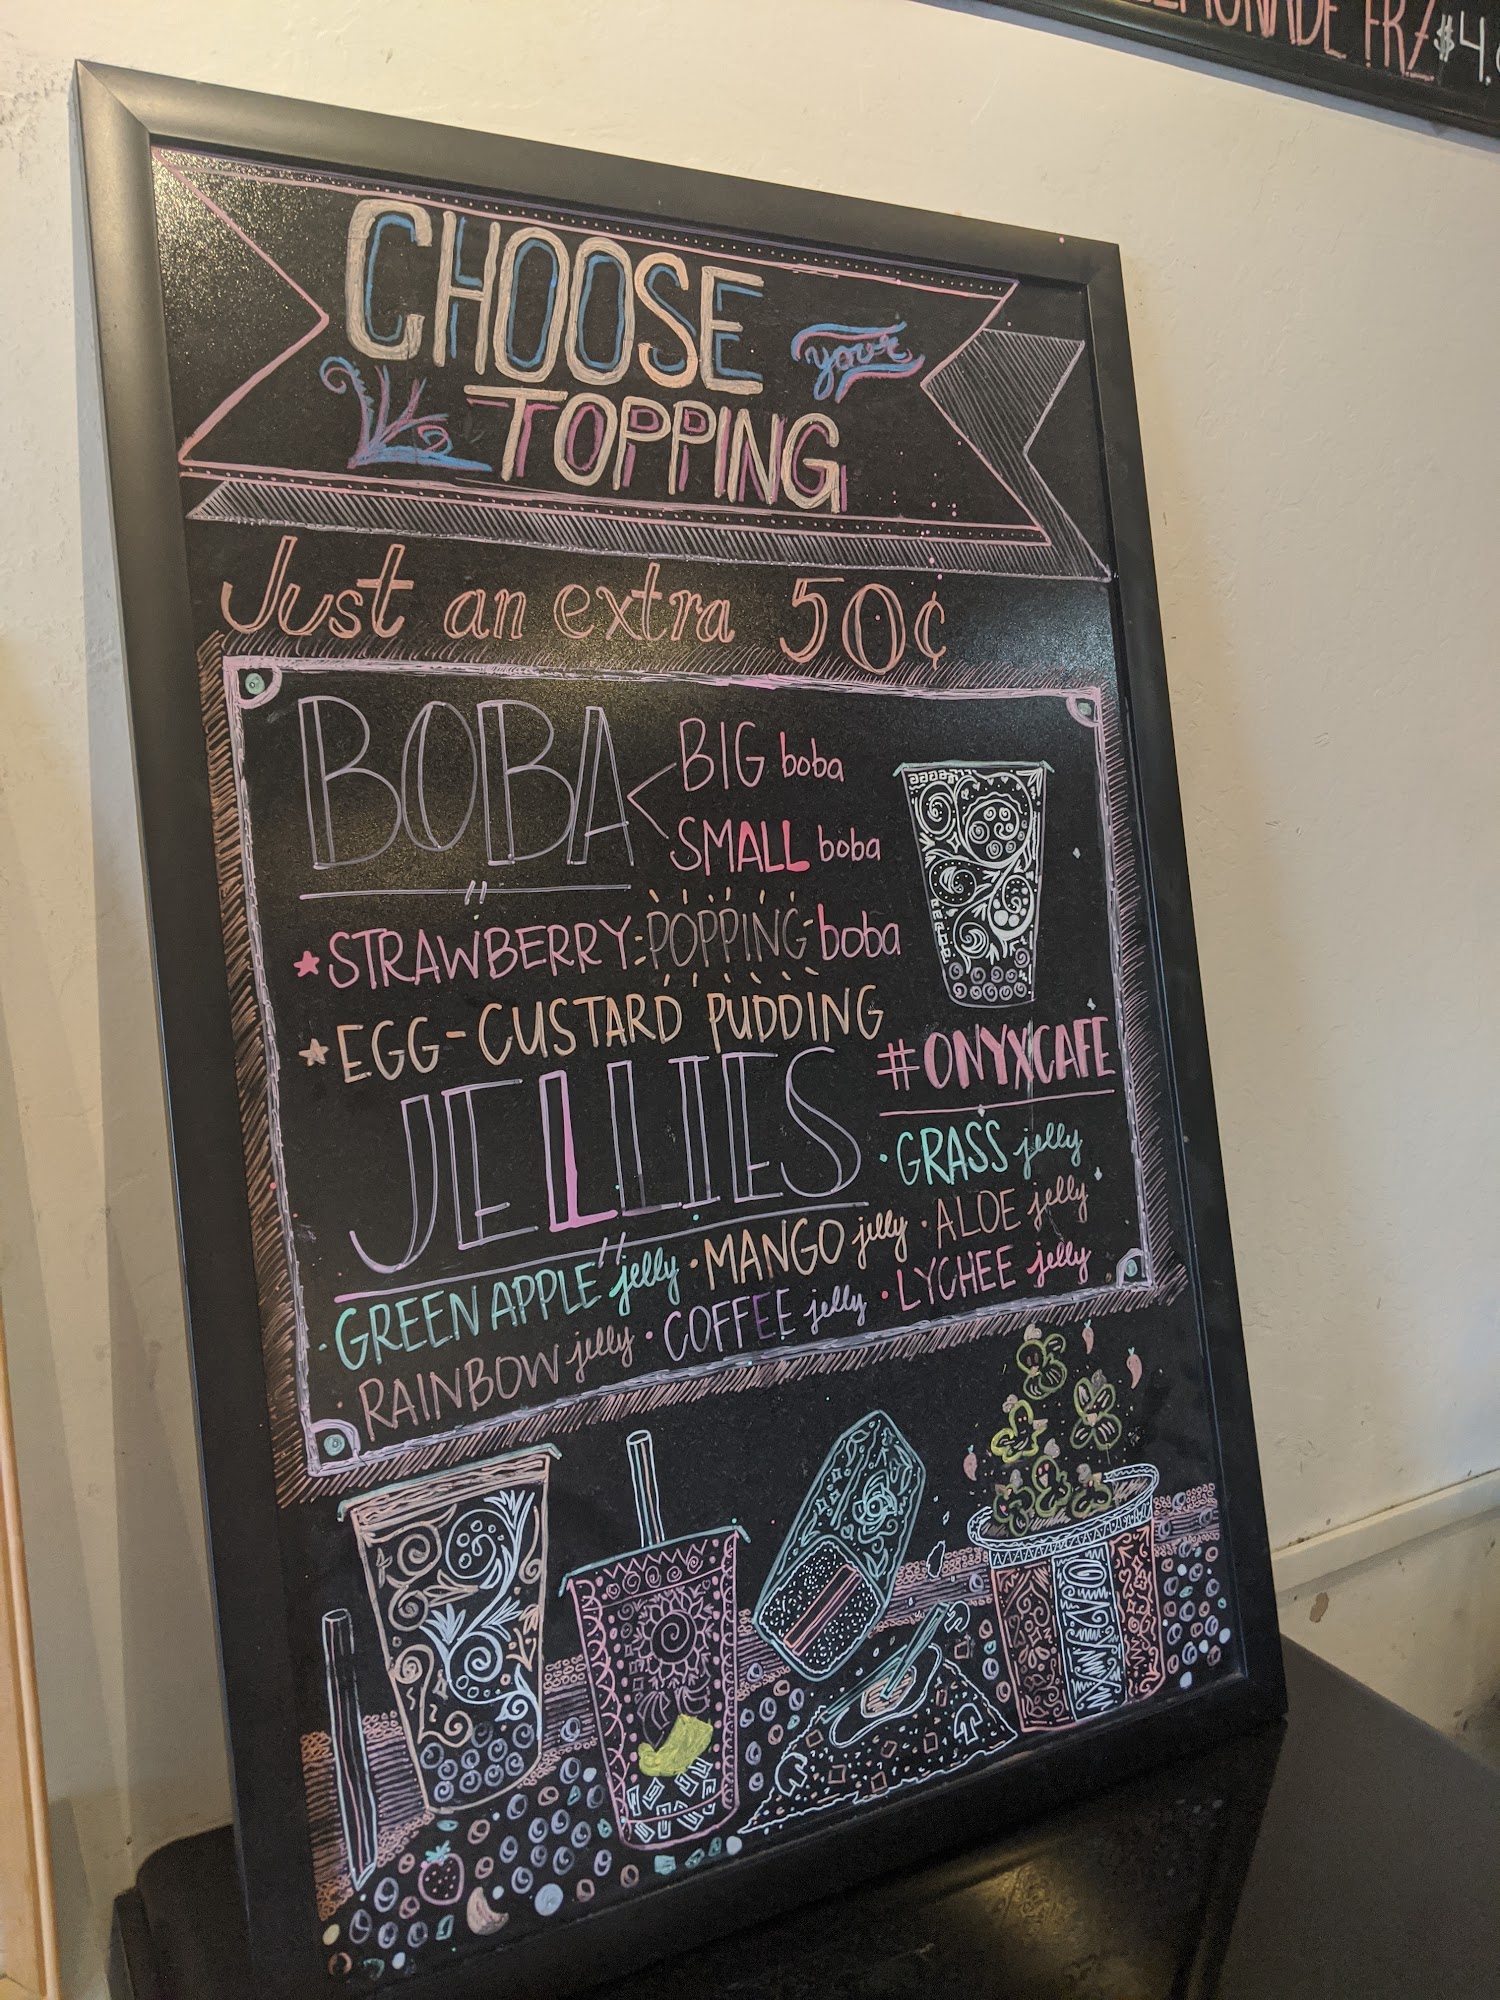 LEMONADE FRZ $4.
CHOOSE your
TOPPING
Just an extra 50¢
BOBA
BIG boba
SMALL boba
★ STRAWBERRY POPPING boba
★ EGG-CUSTARD PUDDING
#ONYXCAFE
JELLIES
• GRASS jelly
• GREEN APPLE jelly • MANGO jelly • ALOE jelly
• RAINBOW jelly • COFFEE jelly • LYCHEE jelly